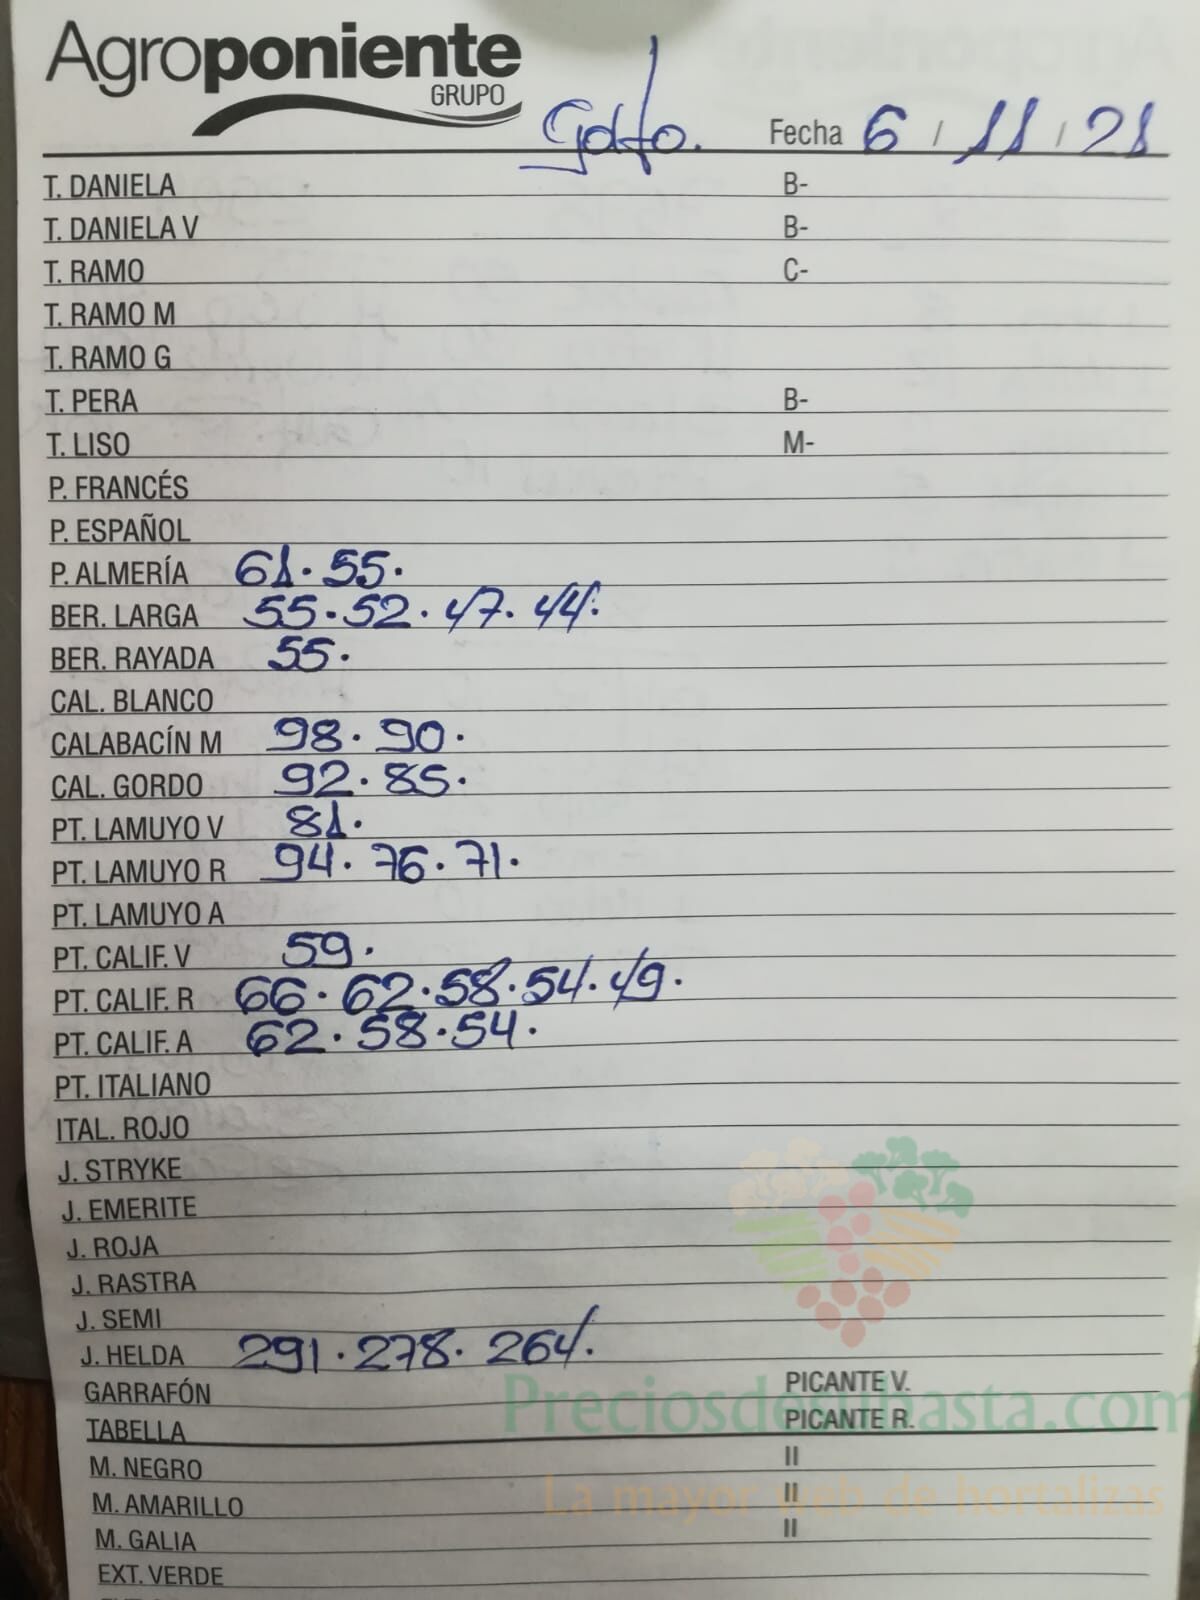 Agroponiente
GRUPO
Gdfo. Fecha 6 / 11 / 21
T. DANIELA B-
T. DANIELA V B-
T. RAMO C-
T. RAMO M
T. RAMO G
T. PERA B-
T. LISO M-
P. FRANCÉS
P. ESPAÑOL
P. ALMERÍA 61. 55.
BER. LARGA 55. 52. 47. 44.
BER. RAYADA 55.
CAL. BLANCO
CALABACÍN M 98. 90.
CAL. GORDO 92. 85.
PT. LAMUYO V 81.
PT. LAMUYO R 94. 76. 71.
PT. LAMUYO A
PT. CALIF. V 59.
PT. CALIF. R 66. 62. 58. 54. 49.
PT. CALIF. A 62. 58. 54.
PT. ITALIANO
ITAL. ROJO
J. STRYKE
J. EMERITE
J. ROJA
J. RASTRA
J. SEMI
J. HELDA 291. 278. 264.
GARRAFÓN PICANTE V.
Preciosdesubasta.com
TABELLA PICANTE R.
M. NEGRO II
M. AMARILLO II
La mayor web de hortalizas
M. GALIA II
EXT. VERDE